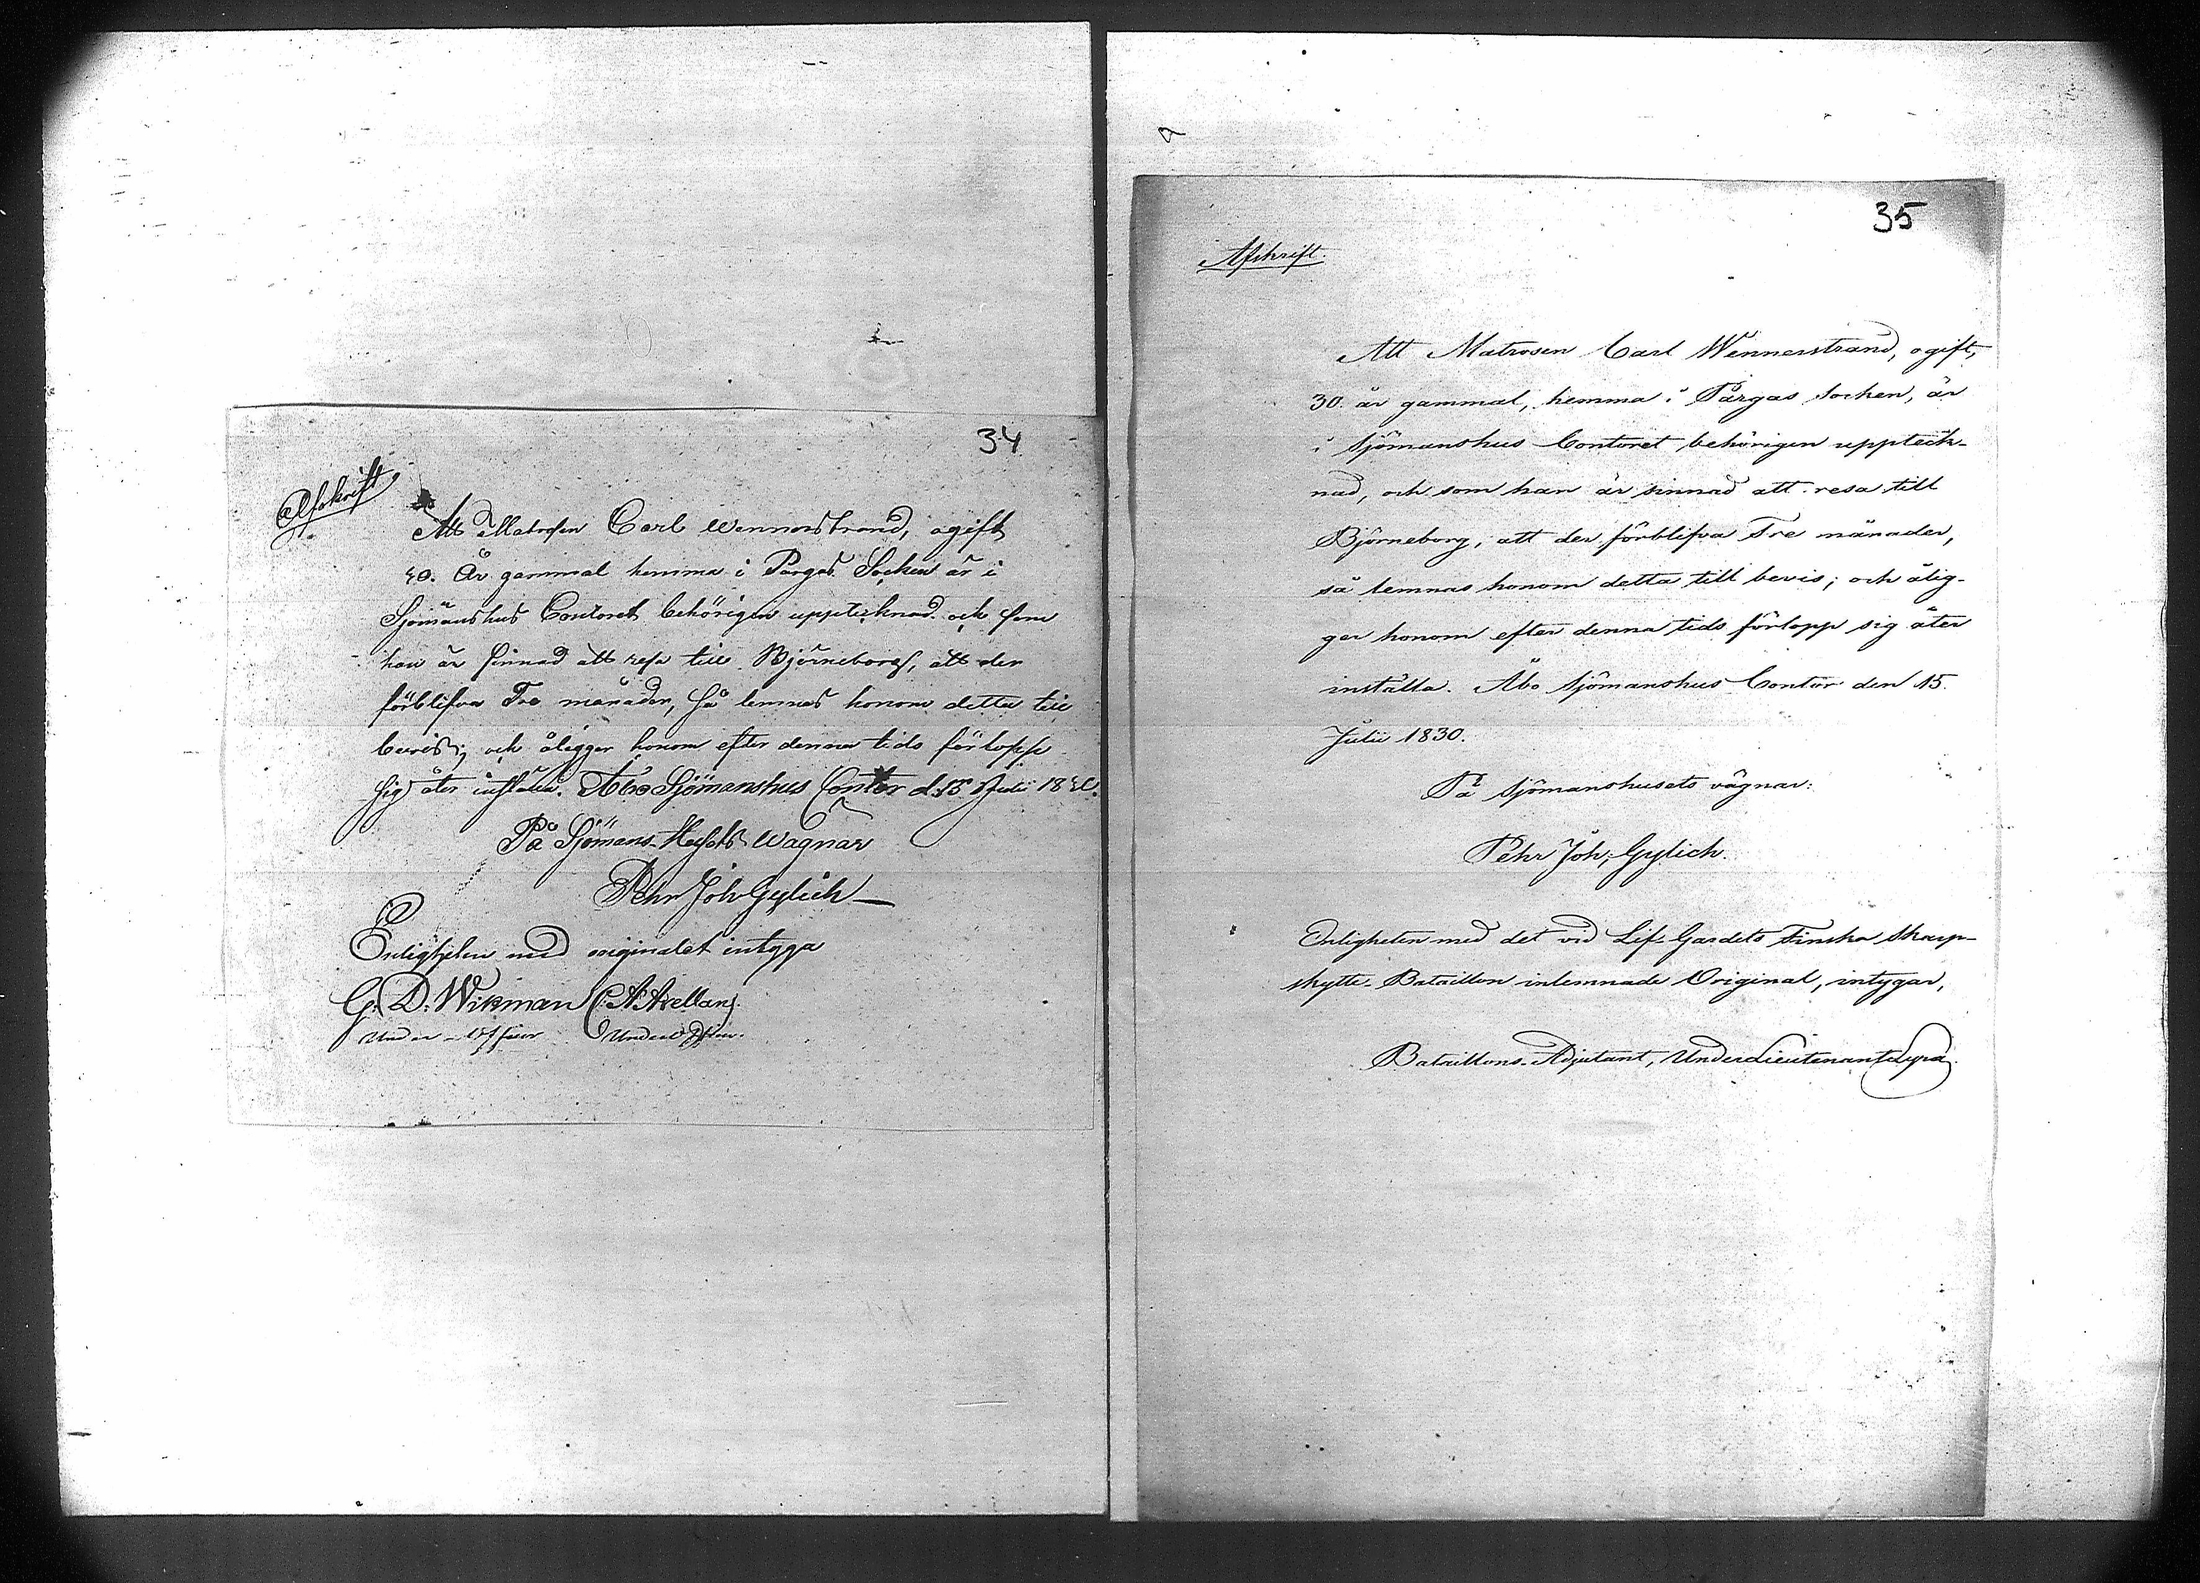 34
Afskrift
Att Matrosen Carl Wennerstrand, ogift
30. År gammal hemma i Pargas Socken är i
Sjömanshus Contoret behörigen upptecknad och som
han är sinnad att resa till Björneborg, att der
förblifva Tre månader, så lemnas honom detta till
bevis; och ålegger honom efter denna tids förlopp
sig åter inställa. Åbo Sjömanshus Contor d. 15 Julii 1830.
På Sjömans-Husets Wägnar
Pehr Joh Gylich
Enligheten med originalet intyga
G. D. Wikman C. A. Avellan.
Under-Officer Underofficer.
35
Afskrift.
Att Matrosen Carl Wennerstrand, ogift,
30. år gammal, hemma i Pargas Socken, är
i Sjömanshus Contoret behörigen uppteck-
nad, och som han är sinnad att resa till
Björneborg, att der förblifva Tre månader,
så lemnas honom detta till bevis; och ålig-
ger honom efter denna tids förlopp sig åter
inställa. Åbo Sjömanshus Contor den 15.
Julii 1830.
På Sjömanshusets vägnar:
Pehr Joh; Gylich.
Enligheten med det vid Lif-Gardets Finska Skarp-
skytte-Bataillon inlemnade Original, intygar,
Bataillons-Adjutant, Underlieutenant